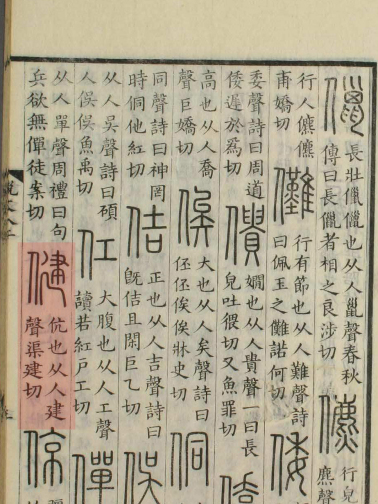 儠 長壯儠儠也从人巤聲春秋
傳曰長儠者相之良涉切
儦 行皃
麃聲
行人儦儦
甫嬌切
儺 行有節也从人難聲詩
曰佩玉之儺諾何切
倭
委聲詩曰周道
倭遲於爲切
僓 嫺也从人貴聲一曰長
皃吐猥切又魚罪切
僑
高也从人喬
聲巨嬌切
俟 大也从人矣聲詩曰
伾伾俟俟牀史切
侗
同聲詩曰神罔
時侗他紅切
佶 正也从人吉聲詩曰
旣佶且閑巨乙切
俁
从人吳聲詩曰碩
人俁俁魚禹切
仜 大腹也从人工聲
讀若紅戸工切
僤
从人單聲周禮曰句
兵欲無僤徒案切
健 伉也从人建
聲渠建切
倞